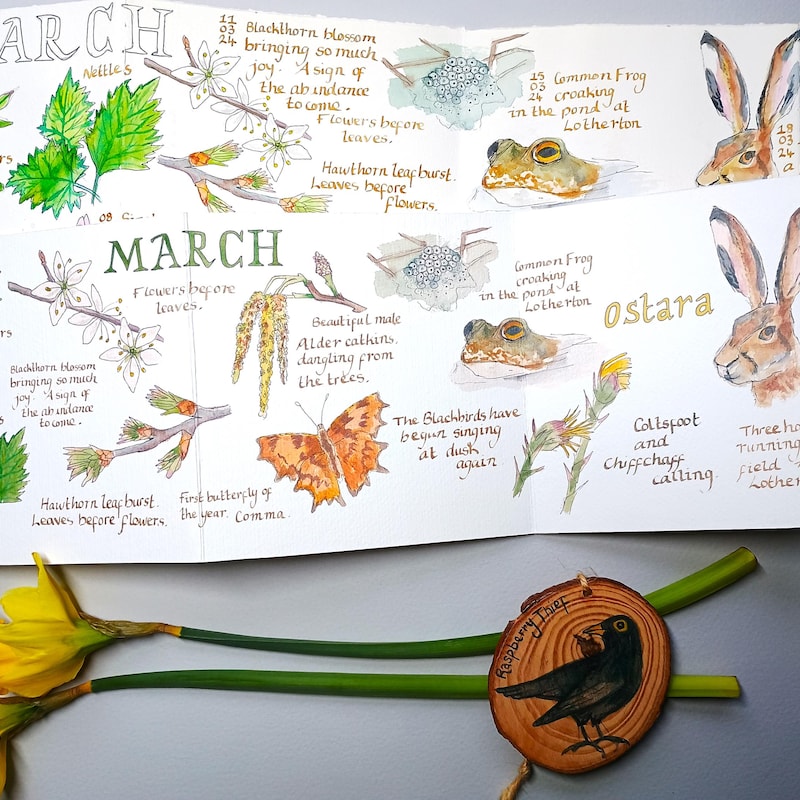 MARCH
Nettles
11
03
24
Blackthorn blossom
bringing so much
joy. A sign of
the abundance
to come.
Flowers before
leaves.
Hawthorn leaf burst.
Leaves before
flowers.
15
03
24
Common Frog
croaking
in the pond at
Lotherton
18
03
24
a
ers
08
MARCH
Flowers before
leaves.
ers
Blackthorn blossom
bringing so much
joy. A sign of
the abundance
to come.
Hawthorn leaf burst.
Leaves before flowers.
Beautiful male
Alder catkins.
dangling from
the trees.
First butterfly of
the year. Comma.
Common Frog
croaking
in the pond at
Lotherton
The Blackbirds have
begun singing
at dusk
again
Ostara
Coltsfoot
and
Chiffchaff
calling.
Three ha
running
field
Lother
Raspberry Thief